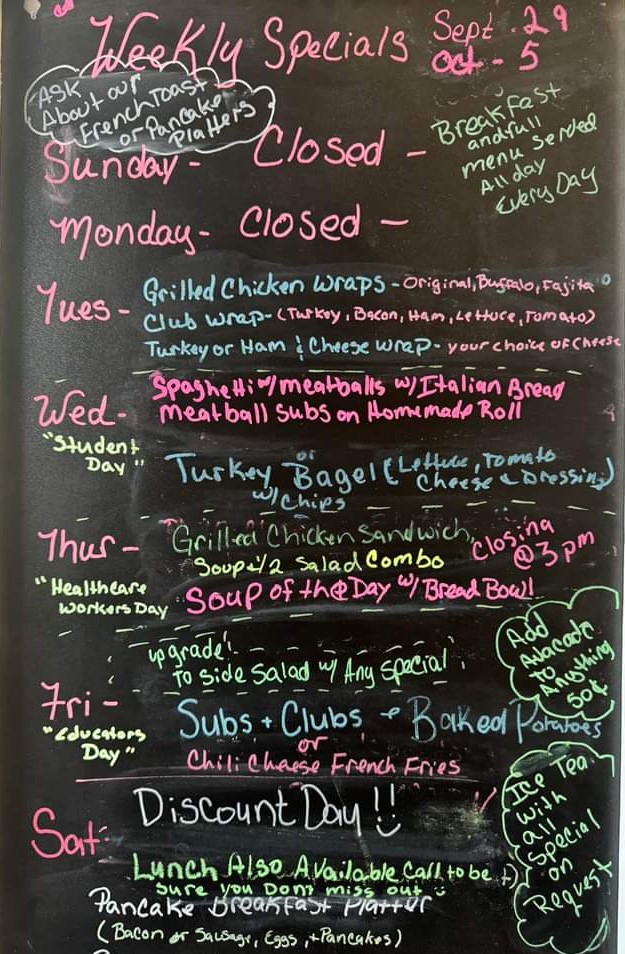 Weekly Specials Sept. 29
Oct - 5
Ask
About our
French Toast
or Pancake
Platters
Breakfast
and full
menu served
All day
Every Day
Sunday - Closed -
Monday - Closed -
Tues - Grilled Chicken Wraps - Original, Buffalo, Fajita
Club Wrap - (Turkey, Bacon, Ham, Lettuce, Tomato)
Turkey or Ham & Cheese Wrap - your choice of Cheese
Wed - Spaghetti w/ meatballs w/ Italian Bread
Meatball Subs on Homemade Roll
"Student
Day"
or
Turkey Bagel (Lettuce, Tomato
Cheese & Dressing)
w/ Chips
Thur - Grilled Chicken Sandwich,
Soup & 1/2 Salad Combo
Closing
@ 3 pm
"Healthcare
Workers Day
Soup of the Day w/ Bread Bowl
upgrade!
To Side Salad w/ Any Special
Add
Avacado
to
Anything
50¢
Fri - Subs + Clubs + Baked Potatoes
"Educators
Day"
or
Chili Cheese French Fries
Sat: Discount Day!!
Ice Tea
with
all
Special
on
Request
Lunch Also Available Call to be
sure you Dont miss out
Pancake Breakfast Platter
(Bacon or Sausage, Eggs, + Pancakes)